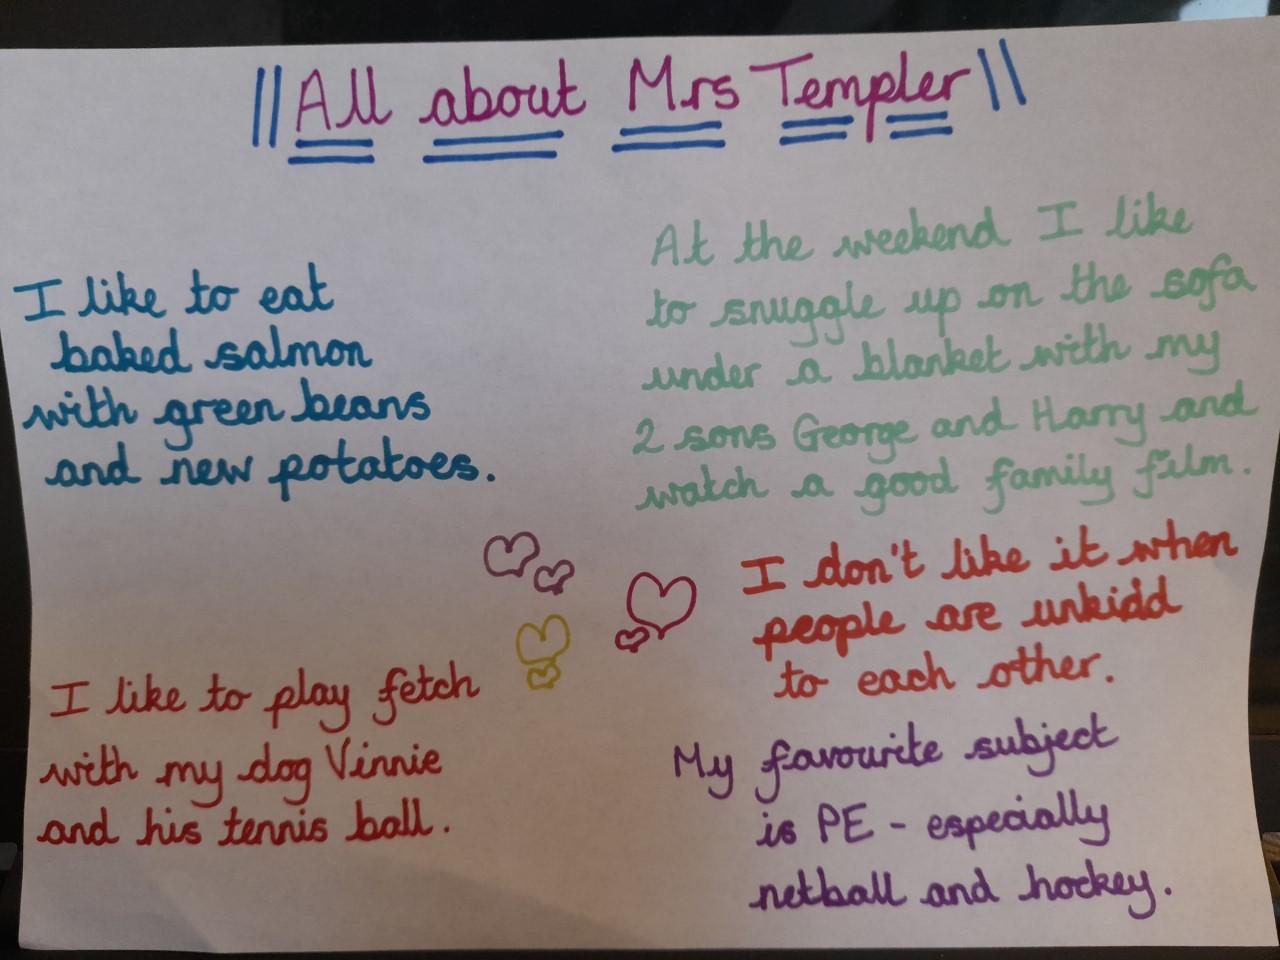 All about Mrs Templer
I like to eat
baked salmon
with green beans
and new potatoes.
At the weekend I like
to snuggle up on the sofa
under a blanket with my
2 sons George and Harry and
watch a good family film.
I don't like it when
people are unkidd
to each other.
I like to play fetch
with my dog Vinnie
and his tennis ball.
My favourite subject
is PE - especially
netball and hockey.